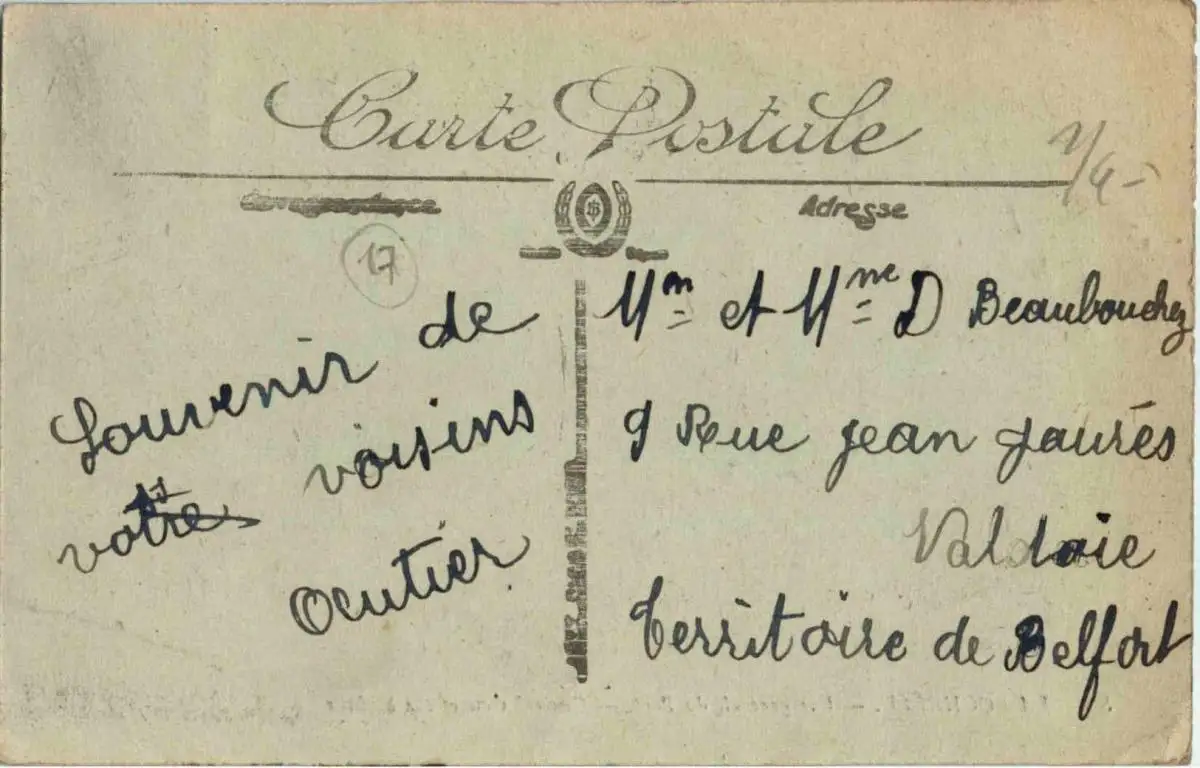 Carte Postale
Correspondance
Adresse
1/4-
17
Souvenir de
votre voisins
Ocutier
Mm et Mme D Beaubouchez
9 Rue jean jaurès
Valdoie
Territoire de Belfort